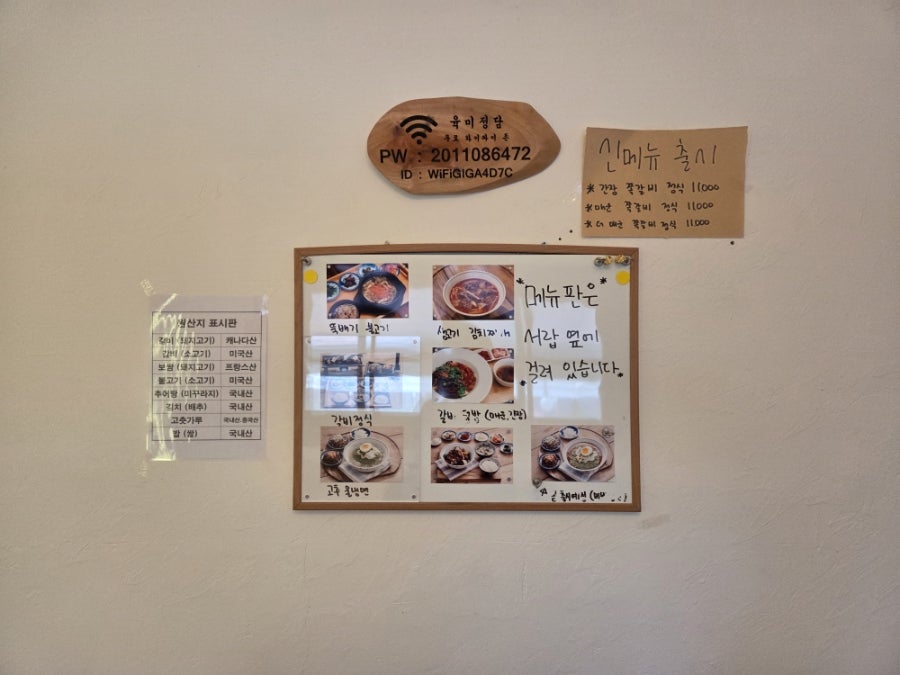 육미정담
무료 와이파이 존
PW : 2011086472
ID : WiFiGiGA4D7C
신메뉴 출시
*간장 쪽갈비 정식 11,000
*매운 쪽갈비 정식 11,000
*더 매운 쪽갈비 정식 11,000
원산지 표시판
갈비 (돼지고기) 캐나다산
갈비 (소고기) 미국산
보쌈 (돼지고기) 프랑스산
불고기 (소고기) 미국산
추어탕 (미꾸라지) 국내산
김치 (배추) 국내산
고춧가루 국내산.중국산
쌀 (쌀) 국내산
뚝배기 불고기
생고기 김치
*메뉴판은*
서랍 옆에
*걸려 있습니다*
갈비정식
갈비 덮밥 (매운,간장)
물냉면